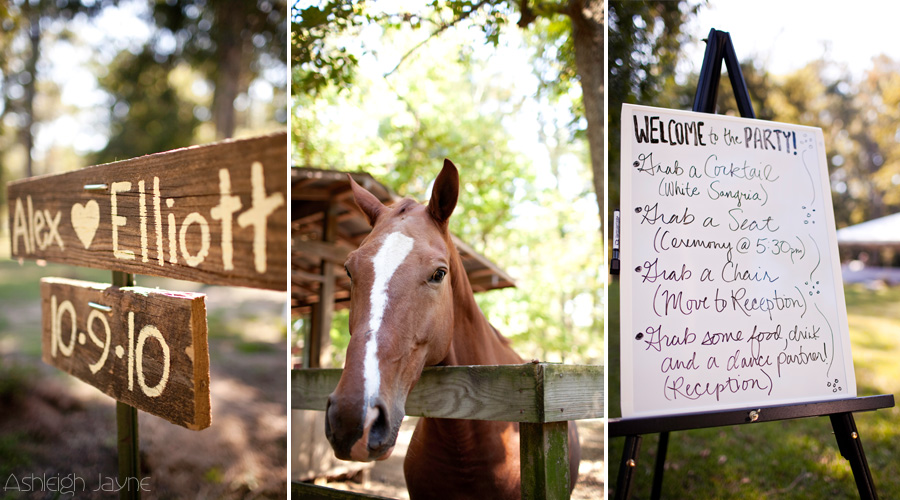 Alex ♥ Elliott
10·9·10
Ashleigh Jayne
WELCOME to the PARTY!
Grab a Cocktail
(White Sangria)
Grab a Seat
(Ceremony @ 5:30pm)
Grab a Chair
(Move to Reception)
Grab some food, drink
and a dance partner!
(Reception)